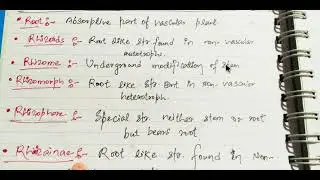 Root :- Absorptive part of vascular plant
Rhizoids :- Root like str. found in non-vascular
autotrophs.
Rhizome :- Underground modification of stem
Rhizomorph :- Root like str. in non-vascular
heterotroph.
Rhizophore :- Special str. neither stem or root
but bears root
Rhizinae :- Root like str. found in Non-